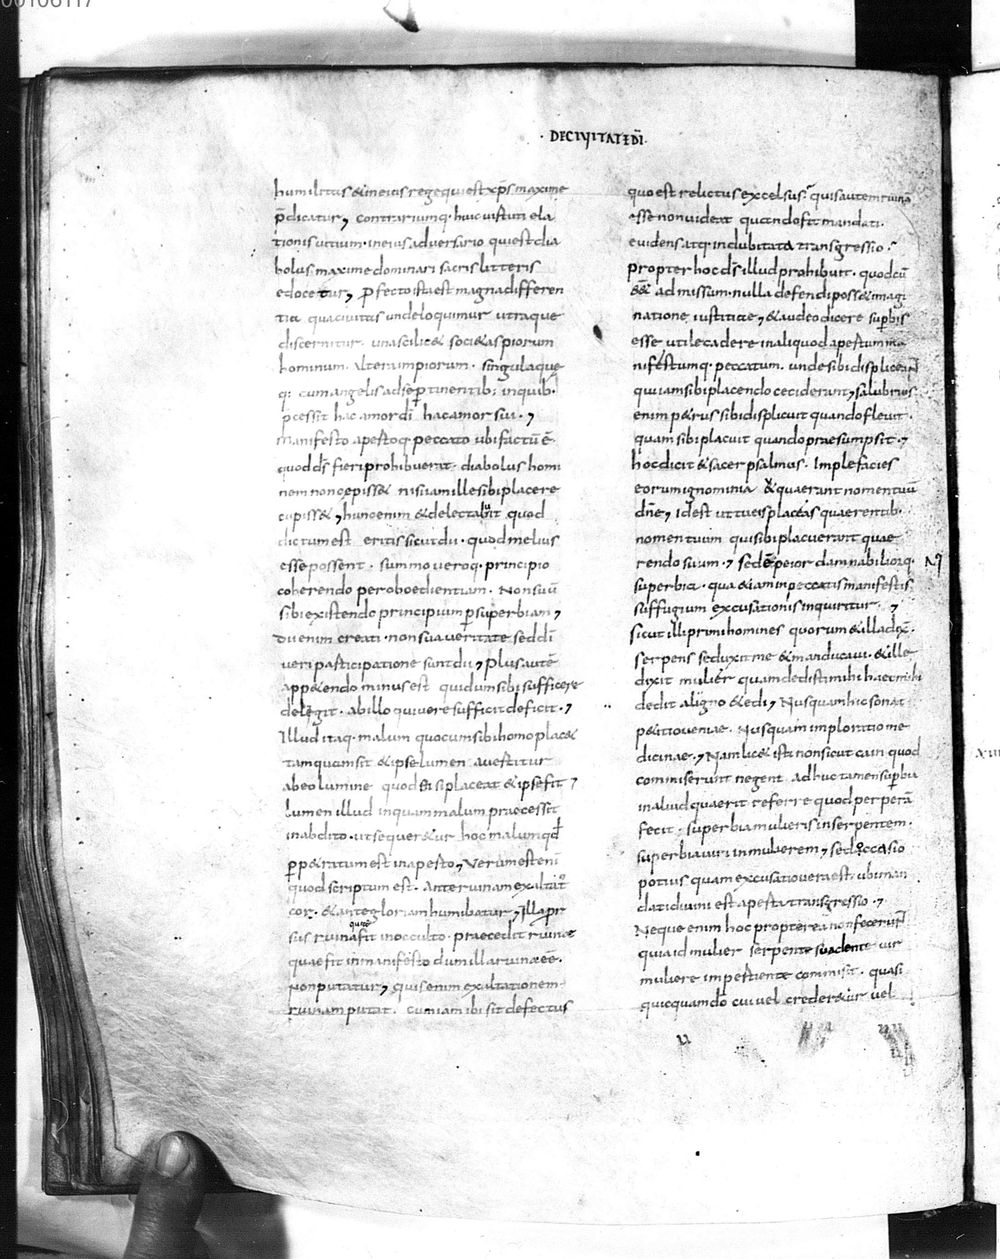 00106117
· DECIVITATEDI ·
humilitas & ineius rege qui est xp̄s maxime
p̄dicatur, contrariumq· huic uirtuti ela
tionis uitium· ineius aduersario qui est dia
bolus· maxime dominari sacris litteris
edocetur, p̄fecto ista est magna differen
tia qua ciuitas unde loquimur utraque
discernitur· una scilic& soci&as piorum
hominum· altera impiorum· singulaque
q: cum angelis ad se p̱tinentib; inquib·
p̄cessit hac amor dī hac amor sui· ,
manifesto apertoq· peccato ubi factū ē
quod ds̄ fieri prohibuerat· diabolus homi
nem non cepiss& nisi iam ille sibi placere
cepiss& , hunc enim & delectauit quod
dictum est eritis sicut dii· quod melius
esse possent· summo ueroq· principio
coherendo per oboedientiam· Non suū
sibi existendo principium p̱ superbiam ,
Dii enim creati· non sua ueritate sed dī
ueri participatione sunt dii , Plus autē
app&endo minus est qui dum sibi sufficere
delegit· ab illo qui uere sufficit deficit· ,
Illud itaq· malum quo cum sibi homo plac&
tamquam sit & ipse lumen auertitur
ab eo lumine quod si si placeat & ipse fit ,
lumen illud inquam malum praecessit
inabdito· ut sequer&ur hoc malum qd̄
p̱p&ratum est inaperto, Verum est enī
quod scriptum est· Ante ruinam exaltat᷒
cor· & ante gloriam humiliatur, Illa pr
sus ruina quae fit inocculto· praecedit ruinā
quae fit inmanifesto dum illa ruina eē·
non putatur, quis enim exaltationem
ruinam putat· cum iam ibi sit defectus
quo est relictus excelsus· quis autem ruinā
esse non uideat quando fit mandati·
euidens atq· indubitata transgressio·
propter hoc ds̄ illud prohibuit· quod cū
eē& admissum· nulla defendi poss& imagi
natione iustitiae, & audeo dicere sup̱bis
esse utile cadere inaliquod apertum ma
nifestumq· peccatum· unde sibi displiceant
qui iam sibi placendo ceciderant, salubrius
enim p&rus sibi displicuit quando fleuit·
quam sibi placuit quando praesumpsit· ,
hoc dicit & sacer psalmus· Imple facies
eorum ignominia & quaerant nomen tuū
dn̄e, Id est ut tu eis placeas quaerentib·
nomen tuum qui sibi placuerunt quae
rendo suum· , sed ē peior damnabiliorq·
superbia· qua & iam inpeccatis manifestis
suffugium excusationis inquiritur· ,
sicut illi primi homines quorum & illa dix̄·
serpens seduxit me & manducaui· & ille
dixit mulier quam dedisti mihi haec mihi
dedit a ligno & edi, Nusquam hic sonat
p&itio ueniae· Nusquam imploratio me
dicinae· , Nam lic& isti non sicut cain quod
commiserunt negent adhuc tamen sup̱bia
inaliud quaerit referre quod perperā
fecit· superbia mulieris inserpentem·
superbia uiri inmulierem, sed occasio
potius quam excusatio uera est· ubi man
dati diuini est aperta transgressio· ,
Neque enim hoc propterea non fecerunt
quia id mulier serpente suadente uir
muliere impertiente commisit· quasi
quicquam dō cui uel crederetur uel